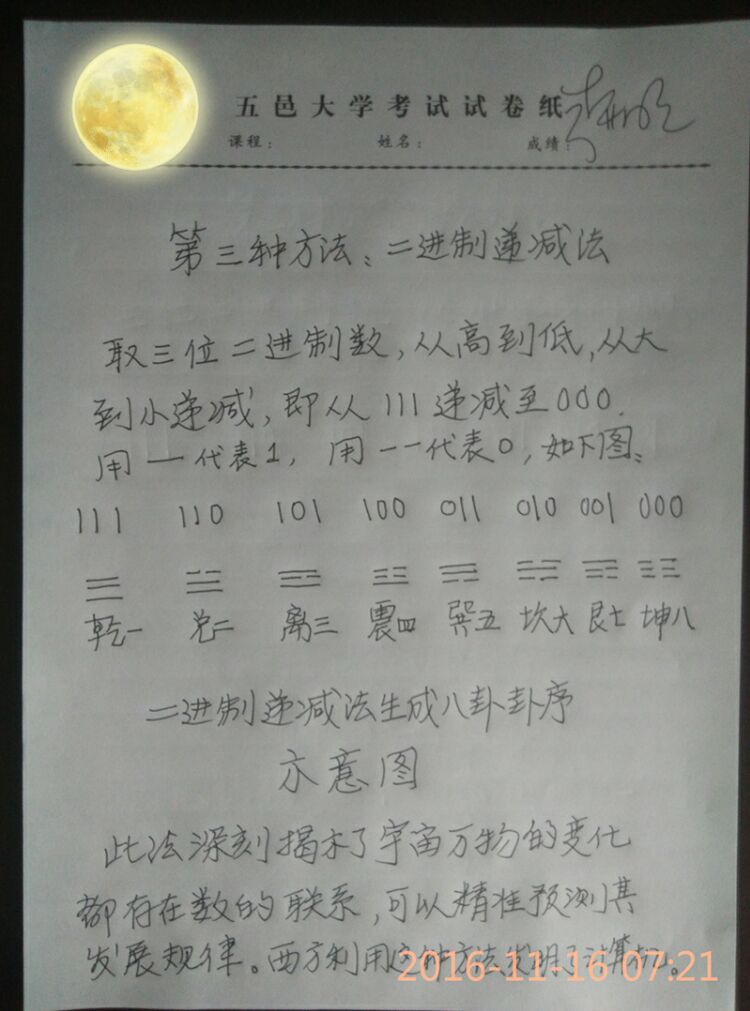 五邑大学考试试卷纸
课程： 姓名： 成绩：
第三种方法：二进制递减法
取三位二进制数，从高到低，从大
到小递减，即从111递减至000.
用 — 代表1， 用 -- 代表0，如下图：
111 110 101 100 011 010 001 000
☰ ☱ ☲ ☳ ☴ ☵ ☶ ☷
乾一 兑二 离三 震四 巽五 坎六 艮七 坤八
二进制递减法生成八卦卦序
示意图
此法深刻揭示了宇宙万物的变化
都存在数的联系，可以精准预测其
发展规律。西方利用这种方法发明了计算机。
2016-11-16 07:21